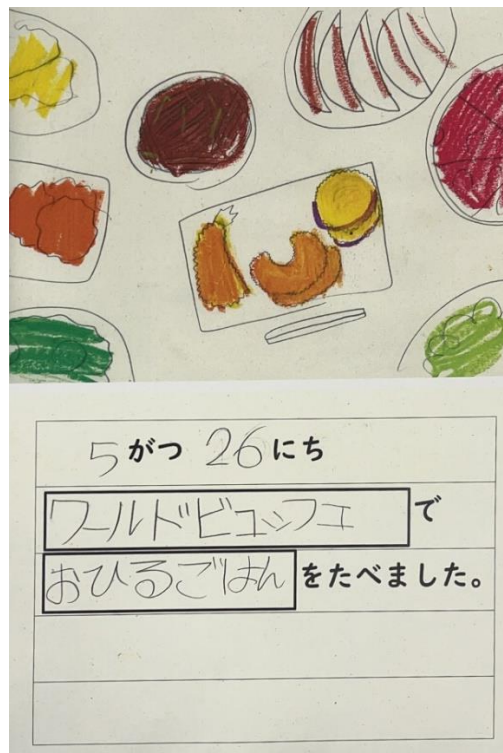 5がつ 26にち
ワールドビュッフェで
おひるごはんをたべました。